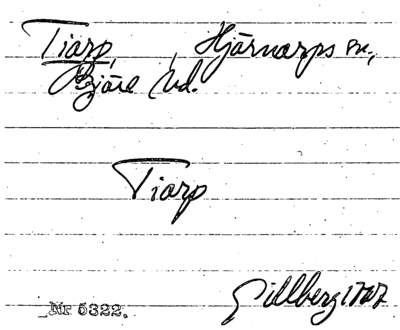 Tiarp, Hjärnarps sn.,
Bjäre hd.
Tiarp
Gillberg 1767
Nr 5322.